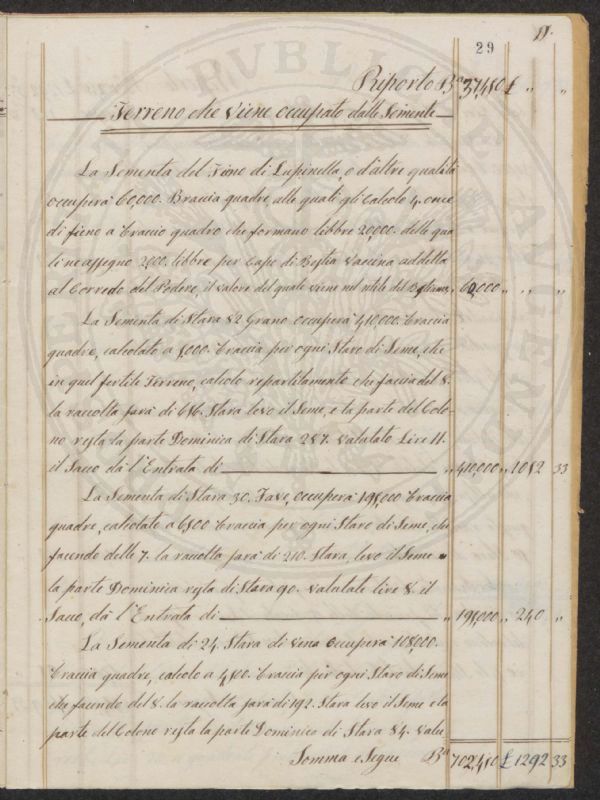 29
11.
Riporto Bª 37,410 £ " "
Terreno che viene occupato dalle Semente
La Sementa del Fieno di Lupinella, o d'altre qualità
occuperà 60,000. Braccia quadre, alle quali gli Calcolo 4. once
di fieno a braccio quadro che formano libbre 20,000. delle qua
li ne assegno 2000. libbre per Capo di Bestia Vaccina addetta
al Corredo del Podere, il valore del quale viene nel utile del Bestiame, " 60,000 " " "
La Sementa di Stara 82 Grano occuperà 410,000. braccia
quadre, calcolato a 5000. braccia per ogni Staro di Seme, che
in quel fertile Terreno, calcolo repartitamente che faccia del 8.
la raccolta sarà di 656. Stara levo il Seme, e la parte del Colo-
no resta la parte Dominica di Stara 287. valutato Lire 11.
il Sacco dà l'Entrata di " 410,000 " 1052 33
La Sementa di Stara 30. Fave, occuperà 195,000 braccia
quadre, calcolato a 6500 braccia per ogni Staro di Seme, che
facendo delle 7. la raccolta sarà di 210. Stara, levo il Seme e
la parte Dominica resta di Stara 90. valutate lire 8. il
Sacco, dà l'Entrata di " 195,000 " 240 "
La Sementa di 24. Stara di Vena occuperà 108,000.
braccia quadre, calcolo a 4500. braccia per ogni Staro di Seme
che facendo del 8. la raccolta sarà di 192. Stara levo il Seme e la
parte del Colono resta la parte Dominica di Stara 84. Valu
Somma e Segue Bª 702,410 £ 1292 33